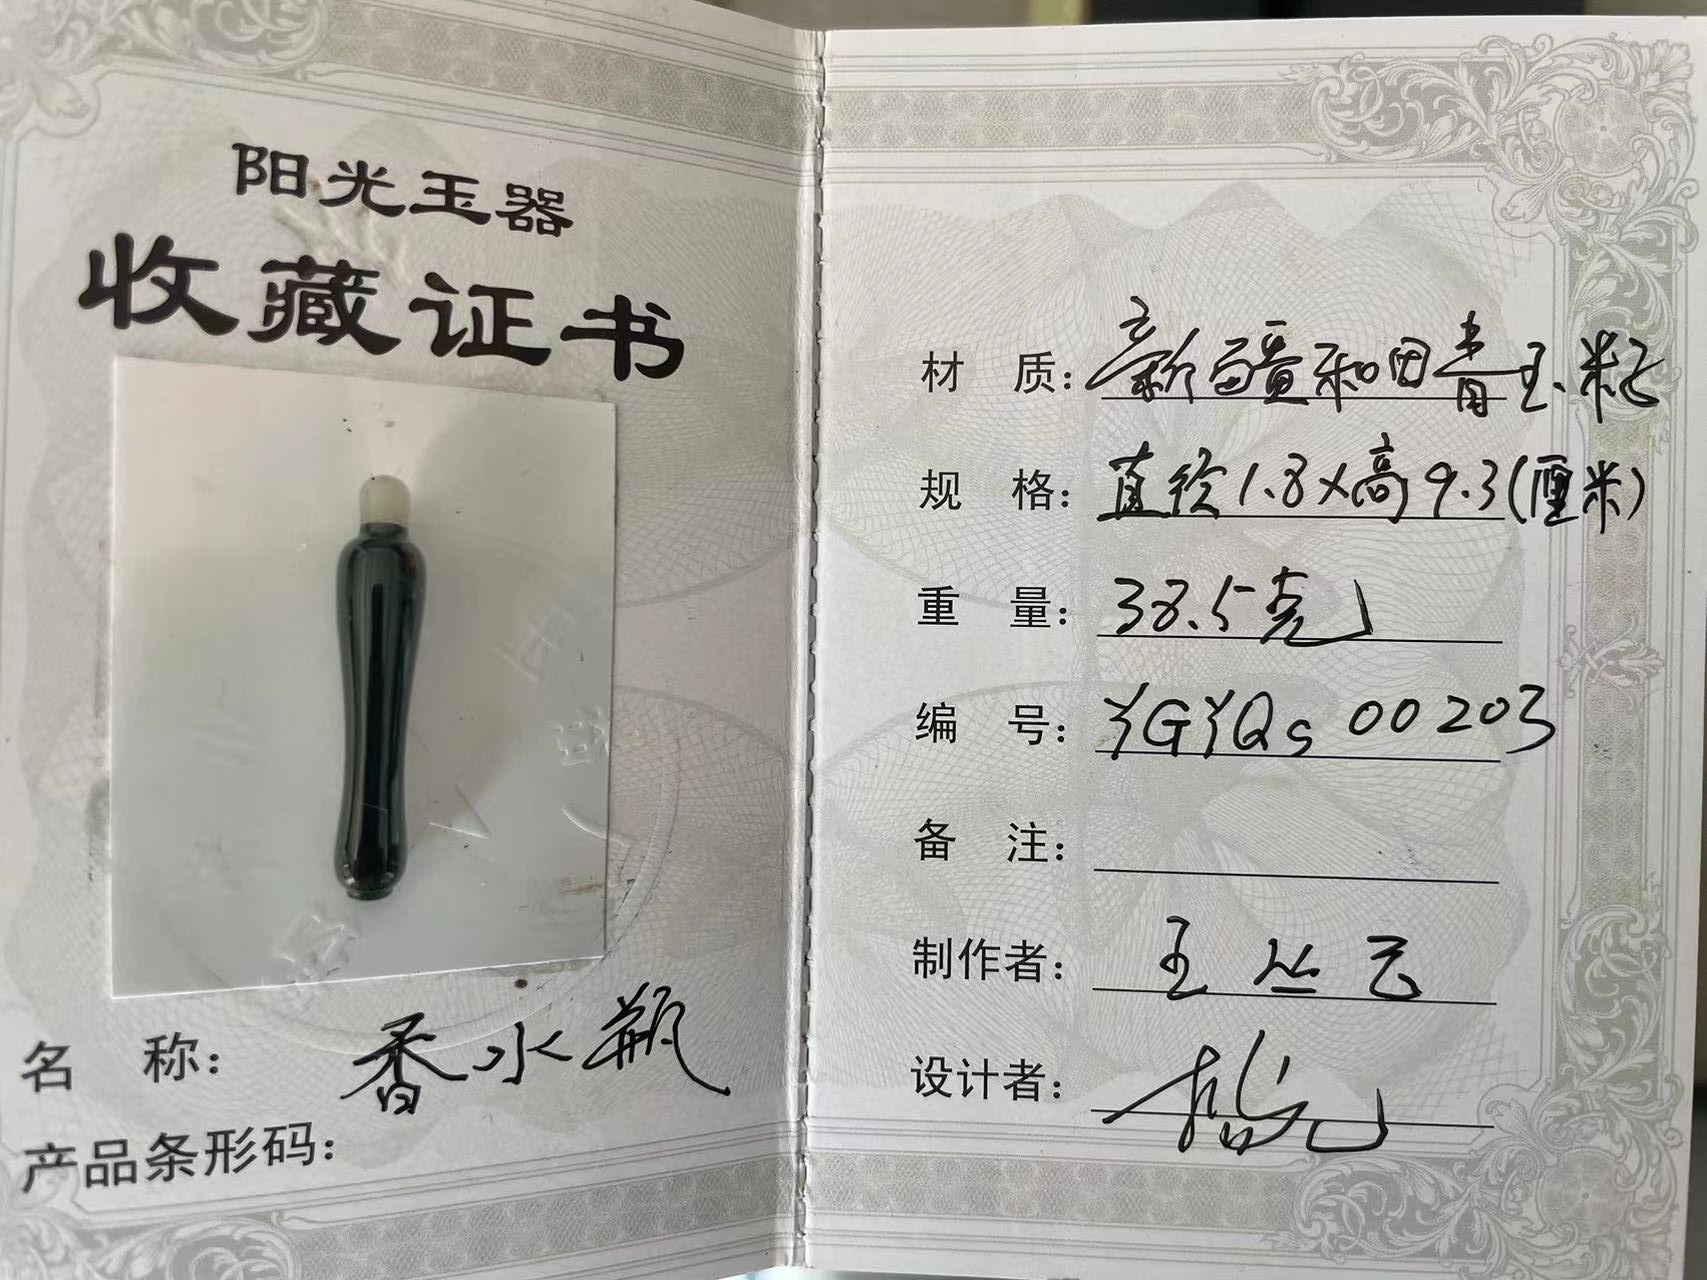 阳光玉器
收藏证书
名 称：香水瓶
产品条形码：
材 质：新疆和田青玉.籽
规 格：直径1.8×高9.3(厘米)
重 量：38.5克
编 号：YGYQs 00203
备 注：
制作者：王丛云
设计者：